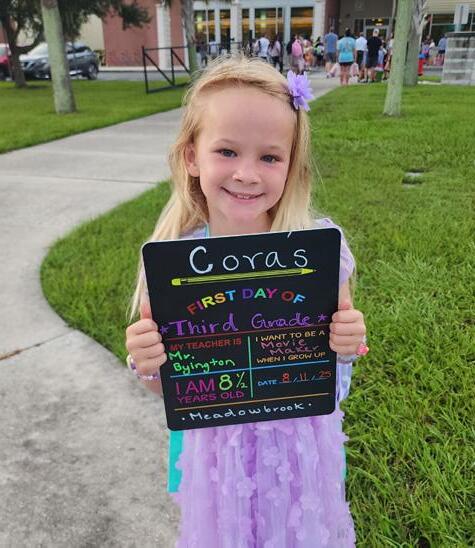 Cora's
FIRST DAY OF
Third Grade
MY TEACHER IS
Mr.
Byington
I WANT TO BE A
Movie
Maker
WHEN I GROW UP
I AM 8½
YEARS OLD
DATE 8, 11, 25
• Meadowbrook •